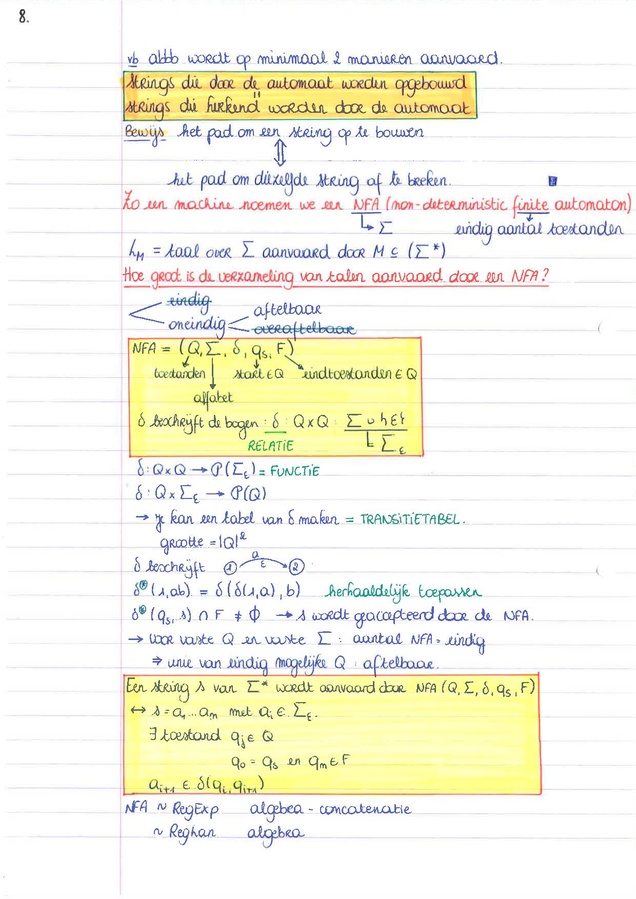 8.
vb abbb wordt op minimaal 2 manieren aanvaard.
strings die door de automaat worden opgebouwd
"
strings die herkend worden door de automaat
Bewijs het pad om een string op te bouwen
⇕
het pad om diezelfde string af te breken.
Zo een machine noemen we een NFA (non-deterministic finite automaton)
↳ Σ eindig aantal toestanden
L_M = taal over Σ aanvaard door M ⊆ (Σ*)
Hoe groot is de verzameling van talen aanvaard door een NFA?
eindig
aftelbaar
oneindig
overaftelbaar
NFA = (Q, Σ, δ, q_s, F)
toestanden start ∈ Q eindtoestanden ∈ Q
alfabet
δ beschrijft de bogen : δ : Q × Q · Σ ∪ {ε}
RELATIE ↳ Σ_ε
δ : Q × Q → P(Σ_ε) = FUNCTIE
δ : Q × Σ_ε → P(Q)
→ je kan een tabel van δ maken = TRANSITIETABEL.
grootte = |Q|²
δ beschrijft 1 a ε 2
δ*(1, ab) = δ(δ(1, a), b) herhaaldelijk toepassen
δ*(q_s, s) ∩ F ≠ Φ → s wordt geaccepteerd door de NFA.
→ Voor vaste Q en vaste Σ : aantal NFA = eindig
⇒ unie van eindig mogelijke Q : aftelbaar.
Een string s van Σ* wordt aanvaard door NFA (Q, Σ, δ, q_s, F)
↔ s = a₁ ... a_m met a_i ∈ Σ_ε.
∃ toestand q_j ∈ Q
q₀ = q_s en q_m ∈ F
a_{i+1} ∈ δ(q_i, q_{i+1})
NFA ~ RegExp algebra - concatenatie
~ algebra